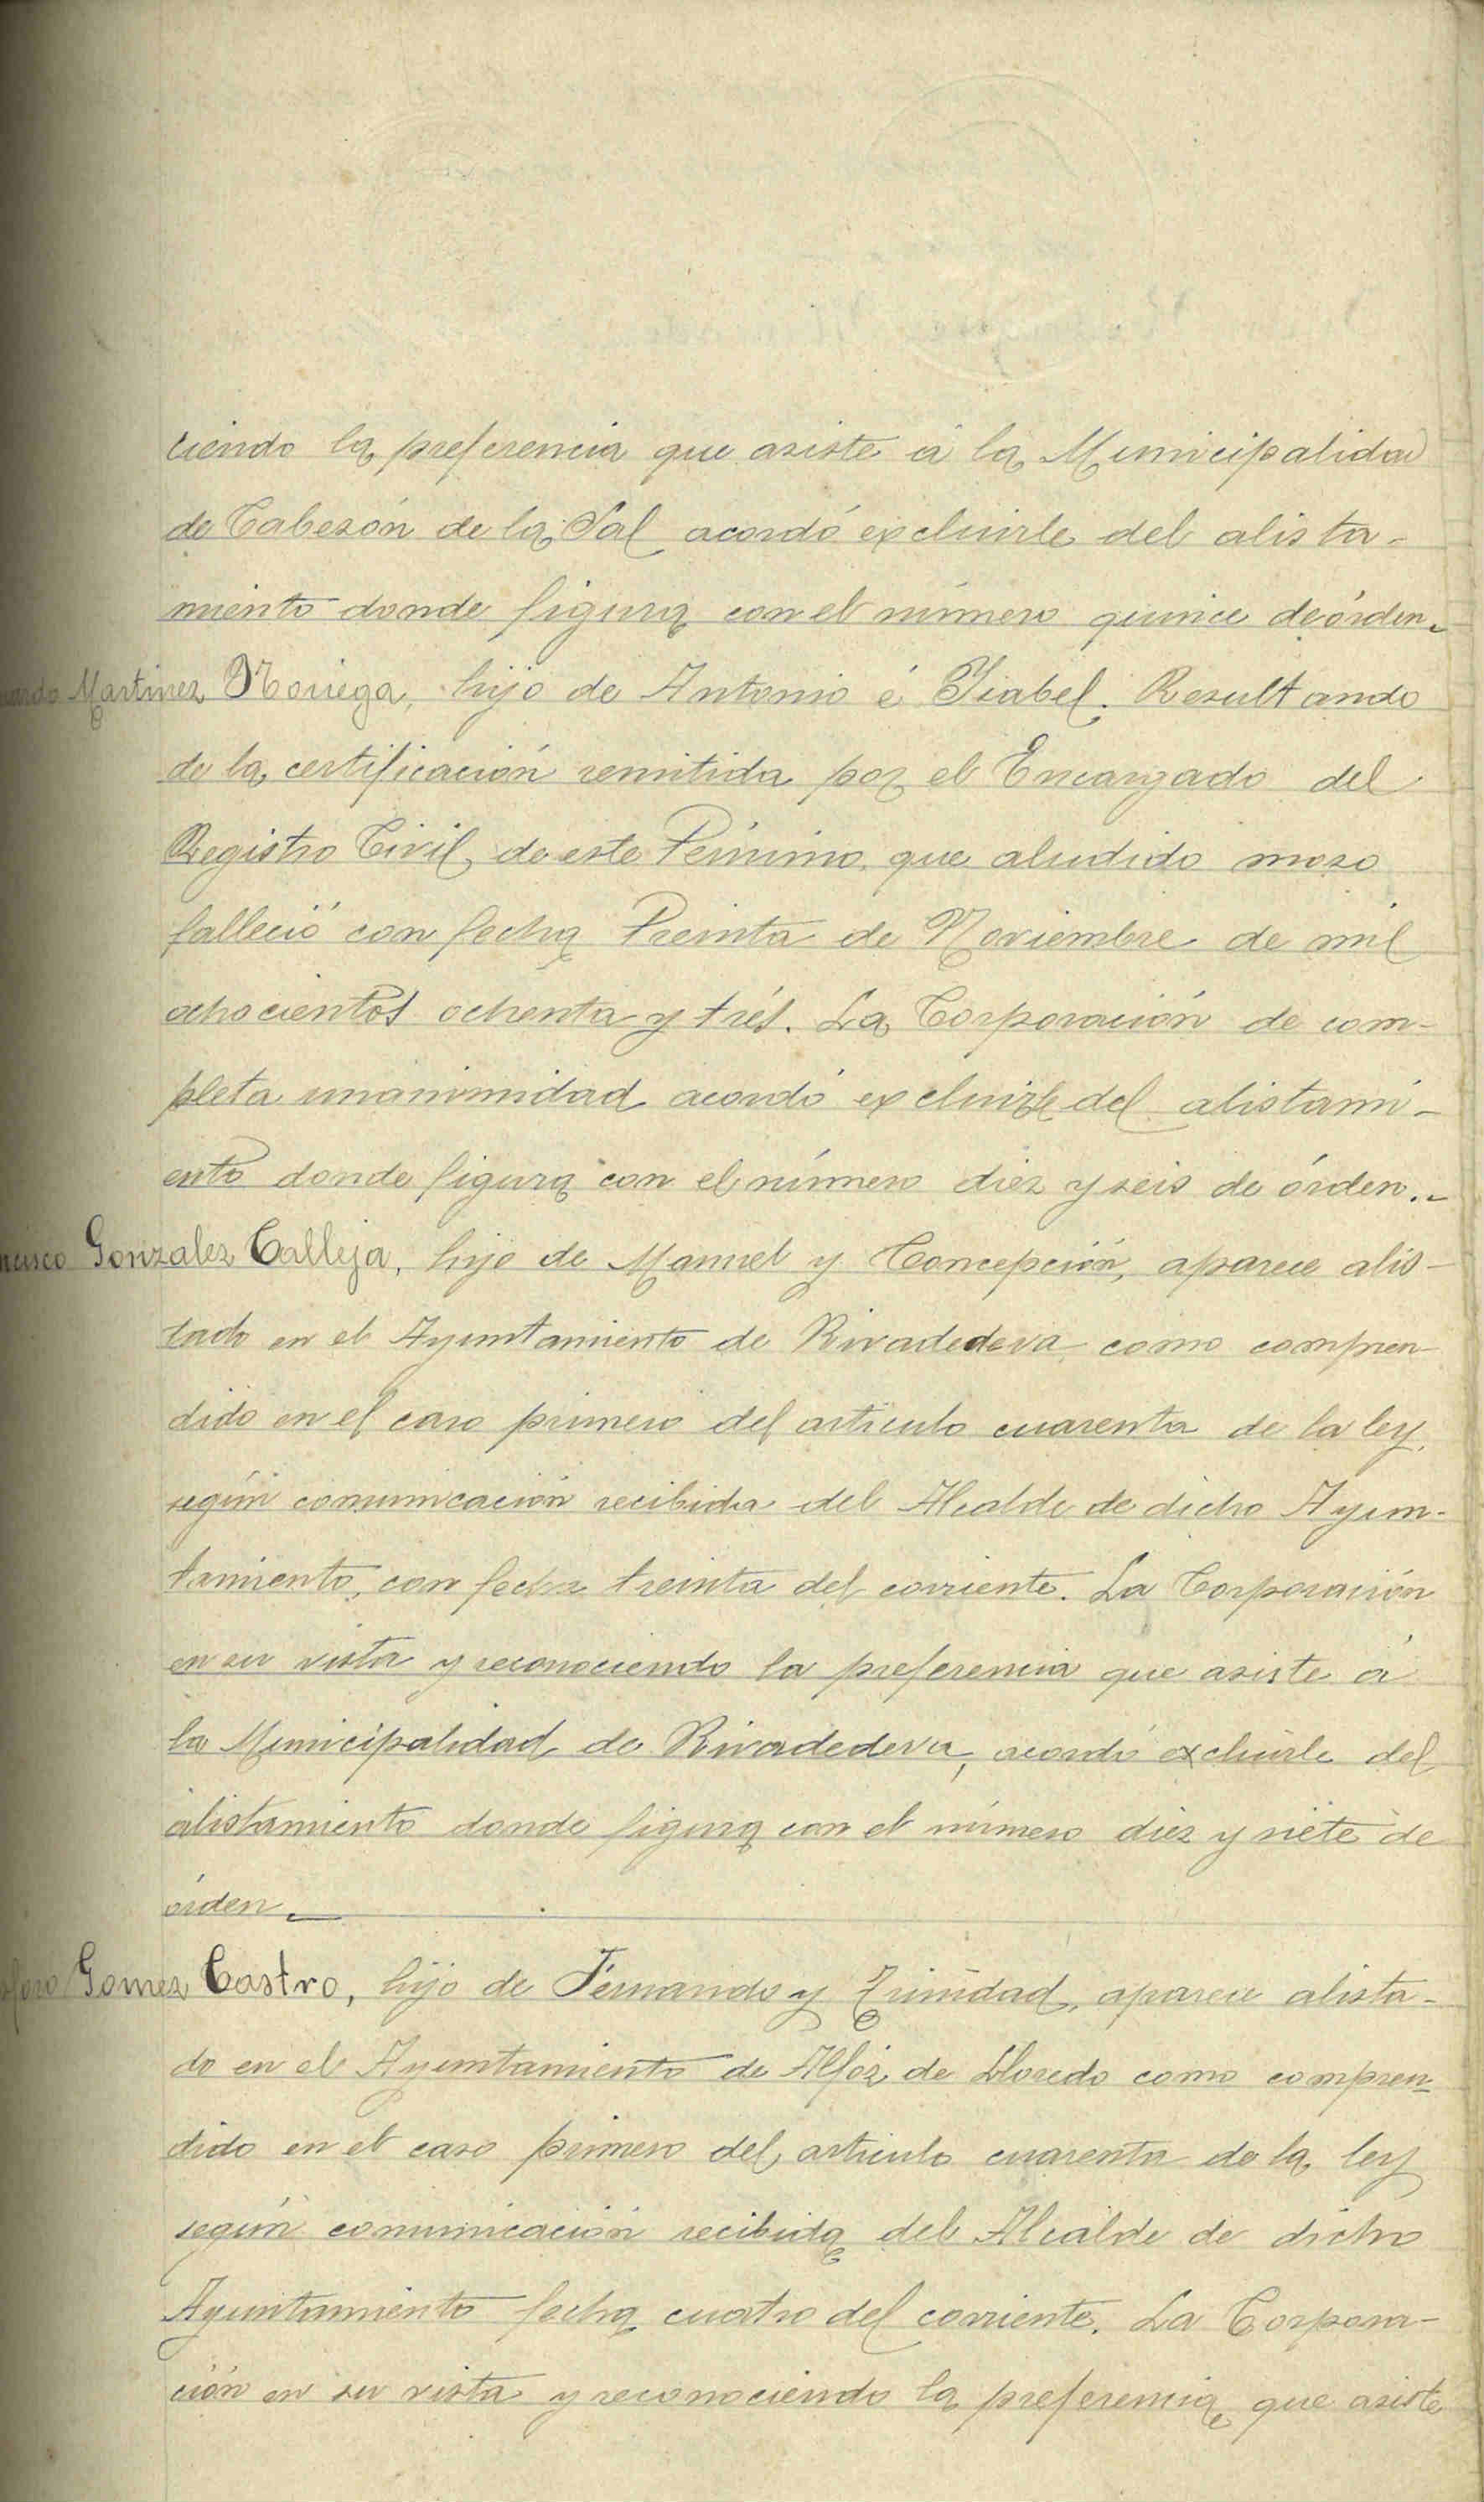 ciendo la preferencia que asiste á la Municipalidad
de Cabezón de la Sal acordó excluirle del alista-
miento donde figura con el número quince de órden.
Martinez Noriega, hijo de Antonio é Isabel. Resultando
de la certificación remitida por el Encargado del
Registro Civil de este Término, que aludido mozo
falleció con fecha Treinta de Noviembre de mil
ochocientos ochenta y trés. La Corporación de com-
pleta unanimidad acordó excluirle del alistami-
ento donde figura con el número diez y seis de órden.
Gonzalez Calleja, hijo de Manuel y Concepción, aparece alis-
tado en el Ayuntamiento de Rivadedeva como compren-
dido en el caso primero del articulo cuarenta de la ley,
según comunicación recibida del Alcalde de dicho Ayun-
tamiento, con fecha treinta del corriente. La Corporación
en su vista y reconociendo la preferencia que asiste á
la Municipalidad de Rivadedeva, acordó excluirle del
alistamiento donde figura con el número diez y siete de
órden.
Gomez Castro, hijo de Fernando y Trinidad, aparece alista-
do en el Ayuntamiento de Alfóz de Lloredo como compren-
dido en el caso primero del articulo cuarenta de la ley
según comunicación recibida del Alcalde de dicho
Ayuntamiento fecha cuatro del corriente. La Corpora-
ción en su vista y reconociendo la preferencia que asiste